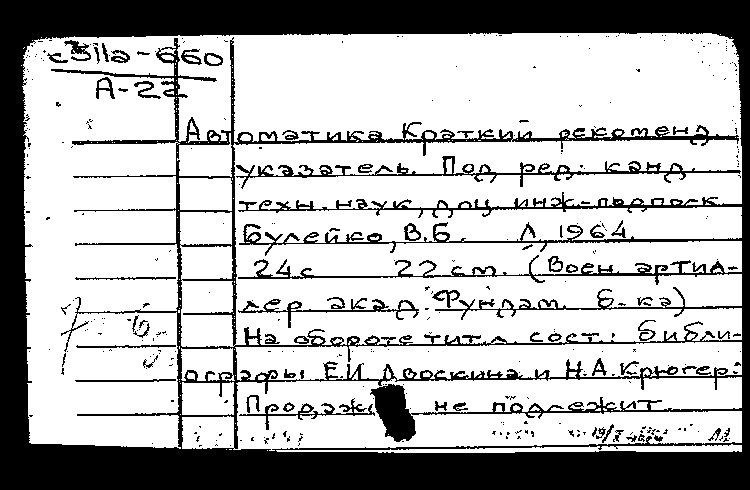 с51а-660
А-22
Автоматика. Краткий рекоменд.
указатель. Под ред: канд.
техн. наук, доц. инж-подполк.
Булейко, В.Б. Л, 1964.
24с 22 см. (Воен. артил-
лер акад. Фундам. б-ка)
На обороте тит.л. сост.: библи-
ографы Е.И. Двоскина и Н.А. Крюгер:
не подлежит